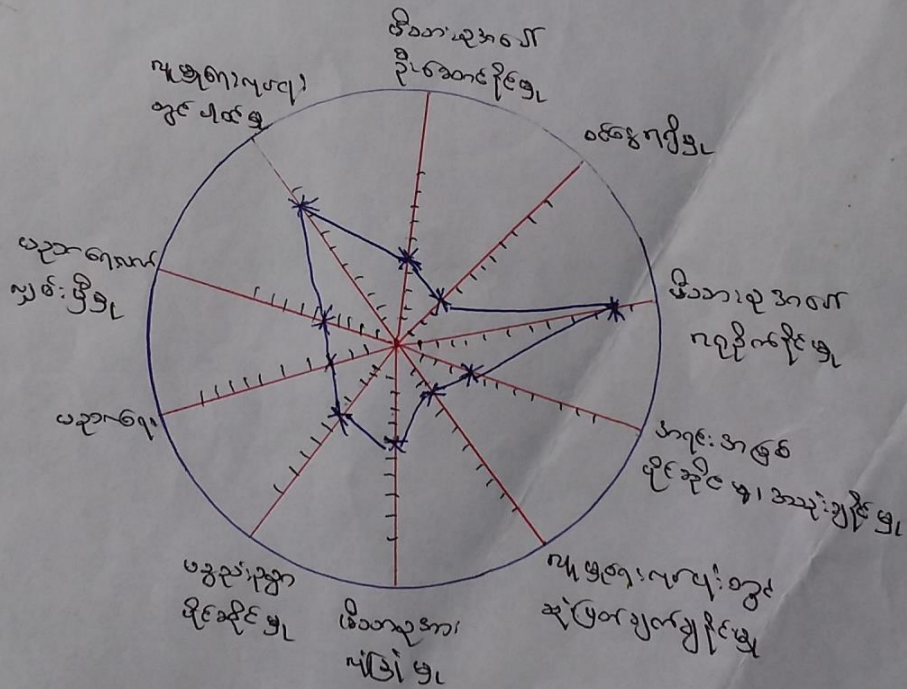 မိသားစုအပေါ်
ဦးဆောင်နိုင်မှု
ဝင်ငွေရရှိမှု
မိသားစုအပေါ်
ဂရုစိုက်နိုင်မှု
အရင်းအမြစ်
ပိုင်ဆိုင်မှု၊ အသုံးချနိုင်မှု
လူမှုရေးလုပ်ငန်းတွင်
ဆုံးဖြတ်ချက်ချနိုင်မှု
မိသားစုအား
လုံခြုံမှု
ပစ္စည်းဥစ္စာ
ပိုင်ဆိုင်မှု
ပညာရေး
လွှမ်းမိုးမှု
လူမှုရေးလုပ်ငန်း
တွင်ပါဝင်မှု